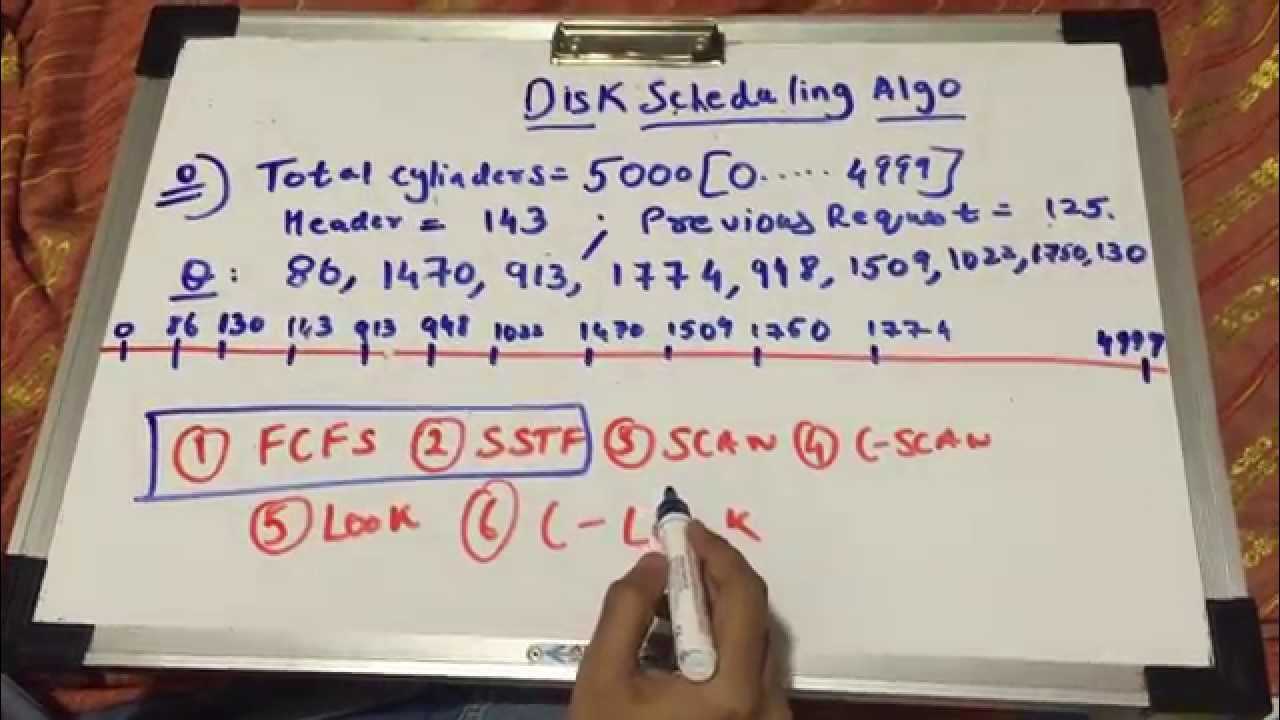 Disk Scheduling Algo
Q) Total cylinders = 5000 [0..... 4999]
Header = 143 ; Previous Request = 125.
Q : 86, 1470, 913, 1774, 948, 1509, 1022, 1750, 130
0 86 130 143 913 948 1022 1470 1509 1750 1774 4999
① FCFS ② SSTF ③ SCAN ④ C-SCAN
⑤ LOOK ⑥ C-